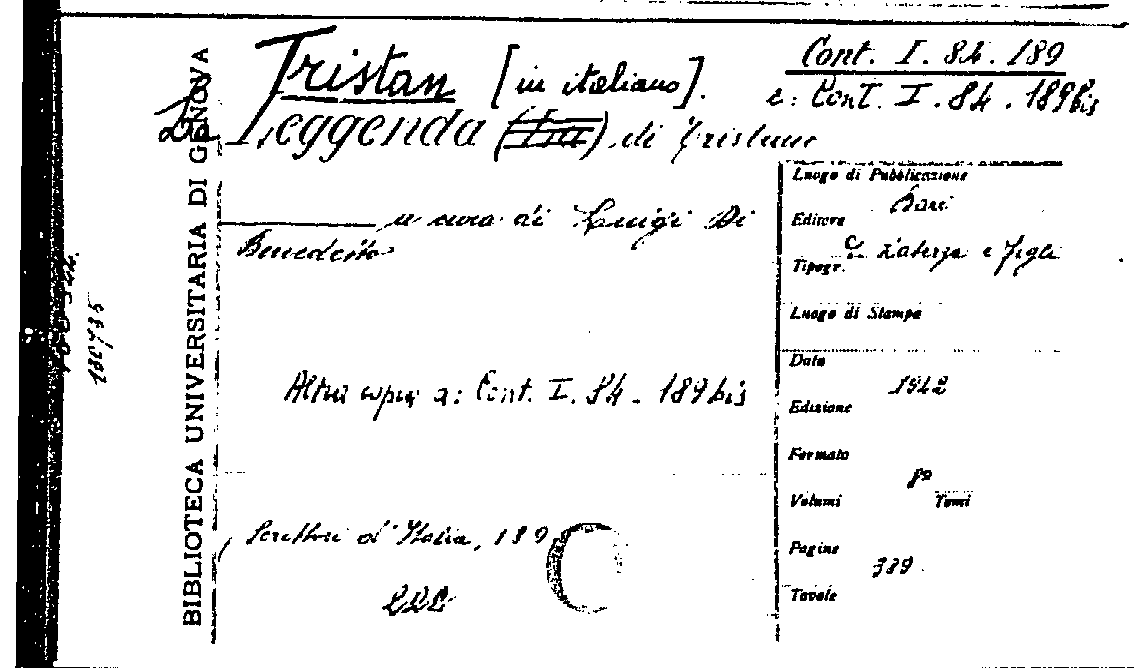 Tristan [in italiano].
Cont. I. 84. 189
e: Cont. I. 84. 189bis
La Leggenda (La) di Tristano
a cura di Luigi Di
Benedetto
Altra copia a: Cont. I. 84 - 189bis
Scrittori d'Italia, 189
C
BIBLIOTECA UNIVERSITARIA DI GENOVA
Luogo di Pubblicazione
Bari
Editore
G. Laterza e Figli
Tipogr.
Luogo di Stampa
Data
1942
Edizione
Formato
8º
Volumi Tomi
Pagine
389.
Tavole